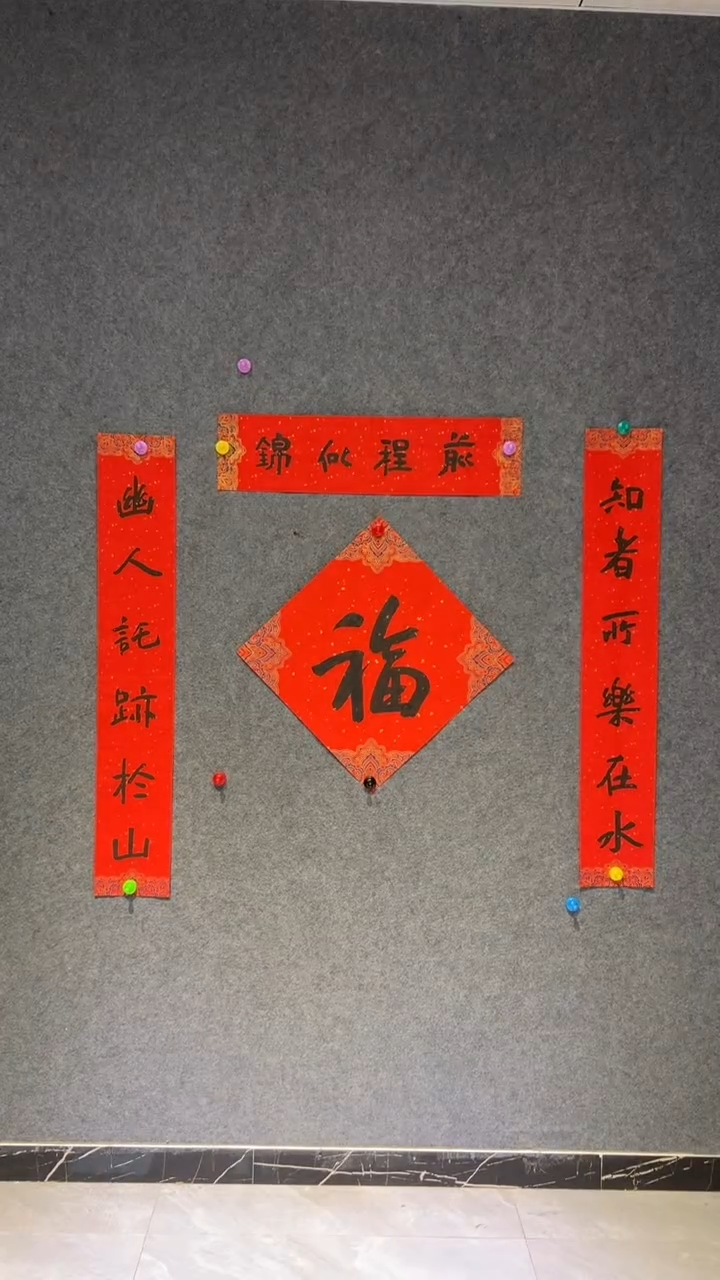 錦似程前
知者所樂在水
幽人託跡於山
福